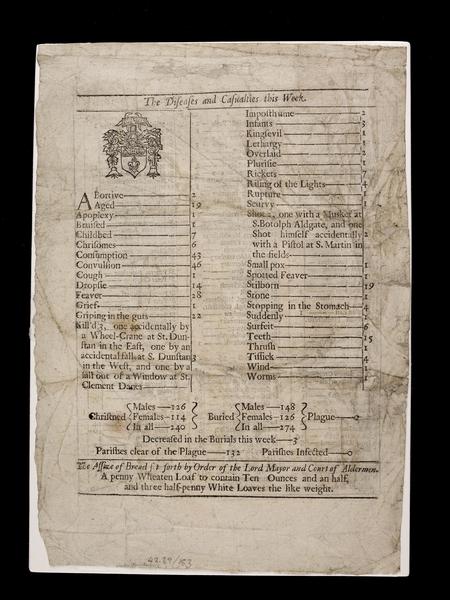 The Diseases and Casualties this Week.
ABortive 2
Aged 19
Apoplexy 1
Bruised 1
Childbed 7
Chrisomes 6
Consumption 43
Convulsion 46
Cough 1
Dropsie 14
Feaver 28
Grief 1
Griping in the guts 22
Kill'd 3, one accidentally by
a Wheel-Crane at St. Dun-
stan in the East, one by an
accidental fall at S. Dunstan 3
in the West, and one by a
fall out of a Window at St.
Clement Danes
Imposthume 2
Infants 3
Kingsevil 1
Lethargy 1
Overlaid 2
Plurisie 1
Rickets 7
Rising of the Lights 4
Rupture 1
Scurvy 1
Shot 2, one with a Musket at
S. Botolph Aldgate, and one
Shot himself accidentally 2
with a Pistol at S. Martin in
the fields
Small pox 1
Spotted Feaver 1
Stilborn 19
Stone 1
Stopping in the Stomach 4
Suddenly 1
Surfeit 6
Teeth 15
Thrush 1
Tissick 4
Wind 1
Worms 1
Males 126 Males 148
Christned Females 114 Buried Females 126 Plague 0
In all 240 In all 274
Decreased in the Burials this week 3
Parishes clear of the Plague 132 Parishes Infected 0
The Assize of Bread set forth by Order of the Lord Mayor and Court of Aldermen.
A penny Wheaten Loaf to contain Ten Ounces and an half,
and three half-penny White Loaves the like weight.